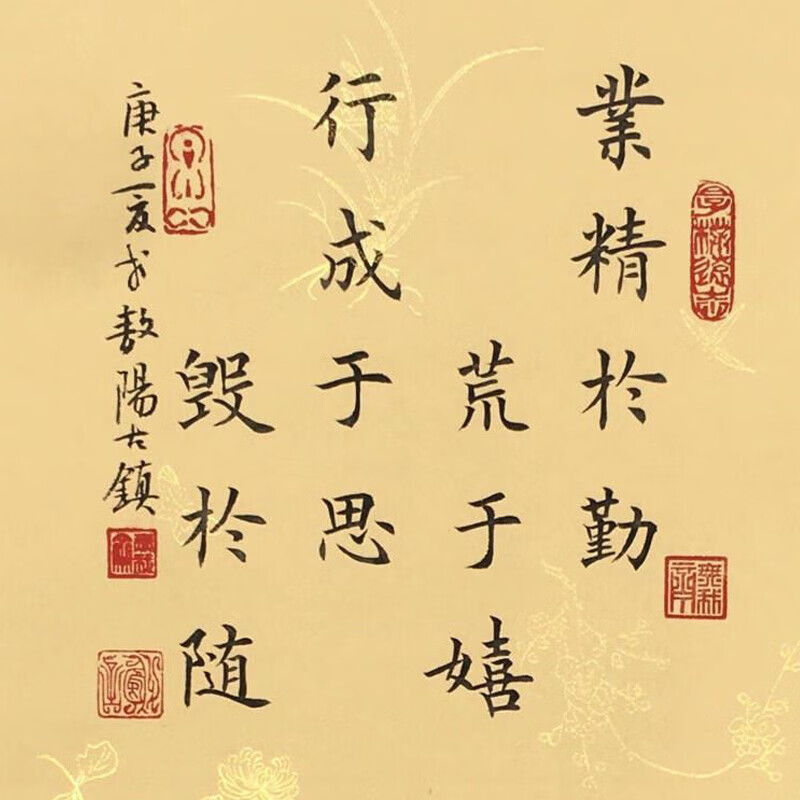 業精於勤
荒于嬉
行成于思
毁於随
庚子夏书敖陽古鎮